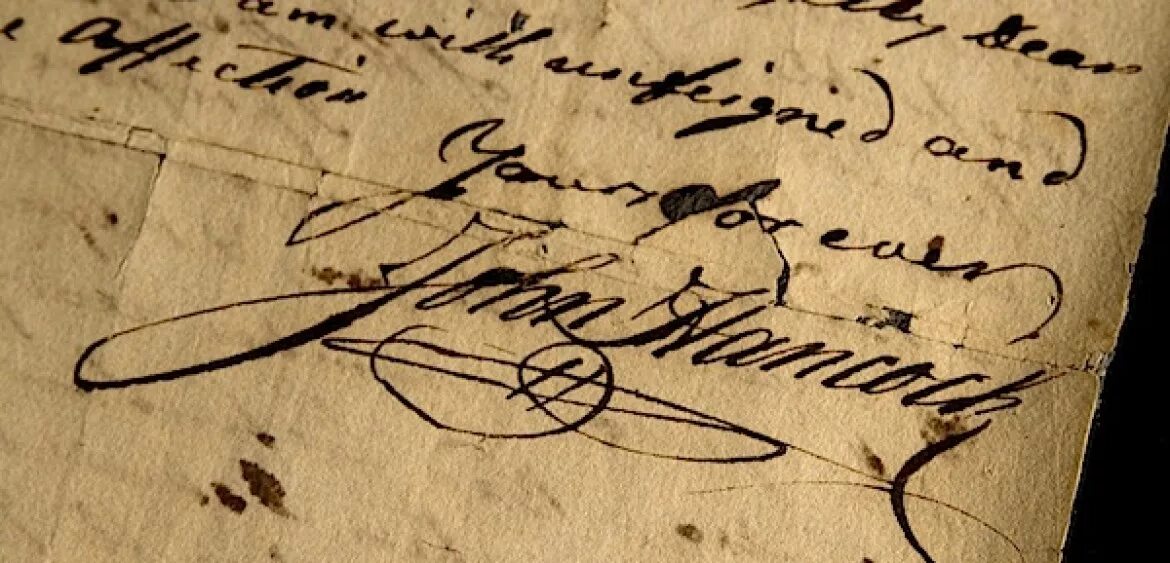 Dear
am with unfeigned and
affection
Yours for ever
John Hancock